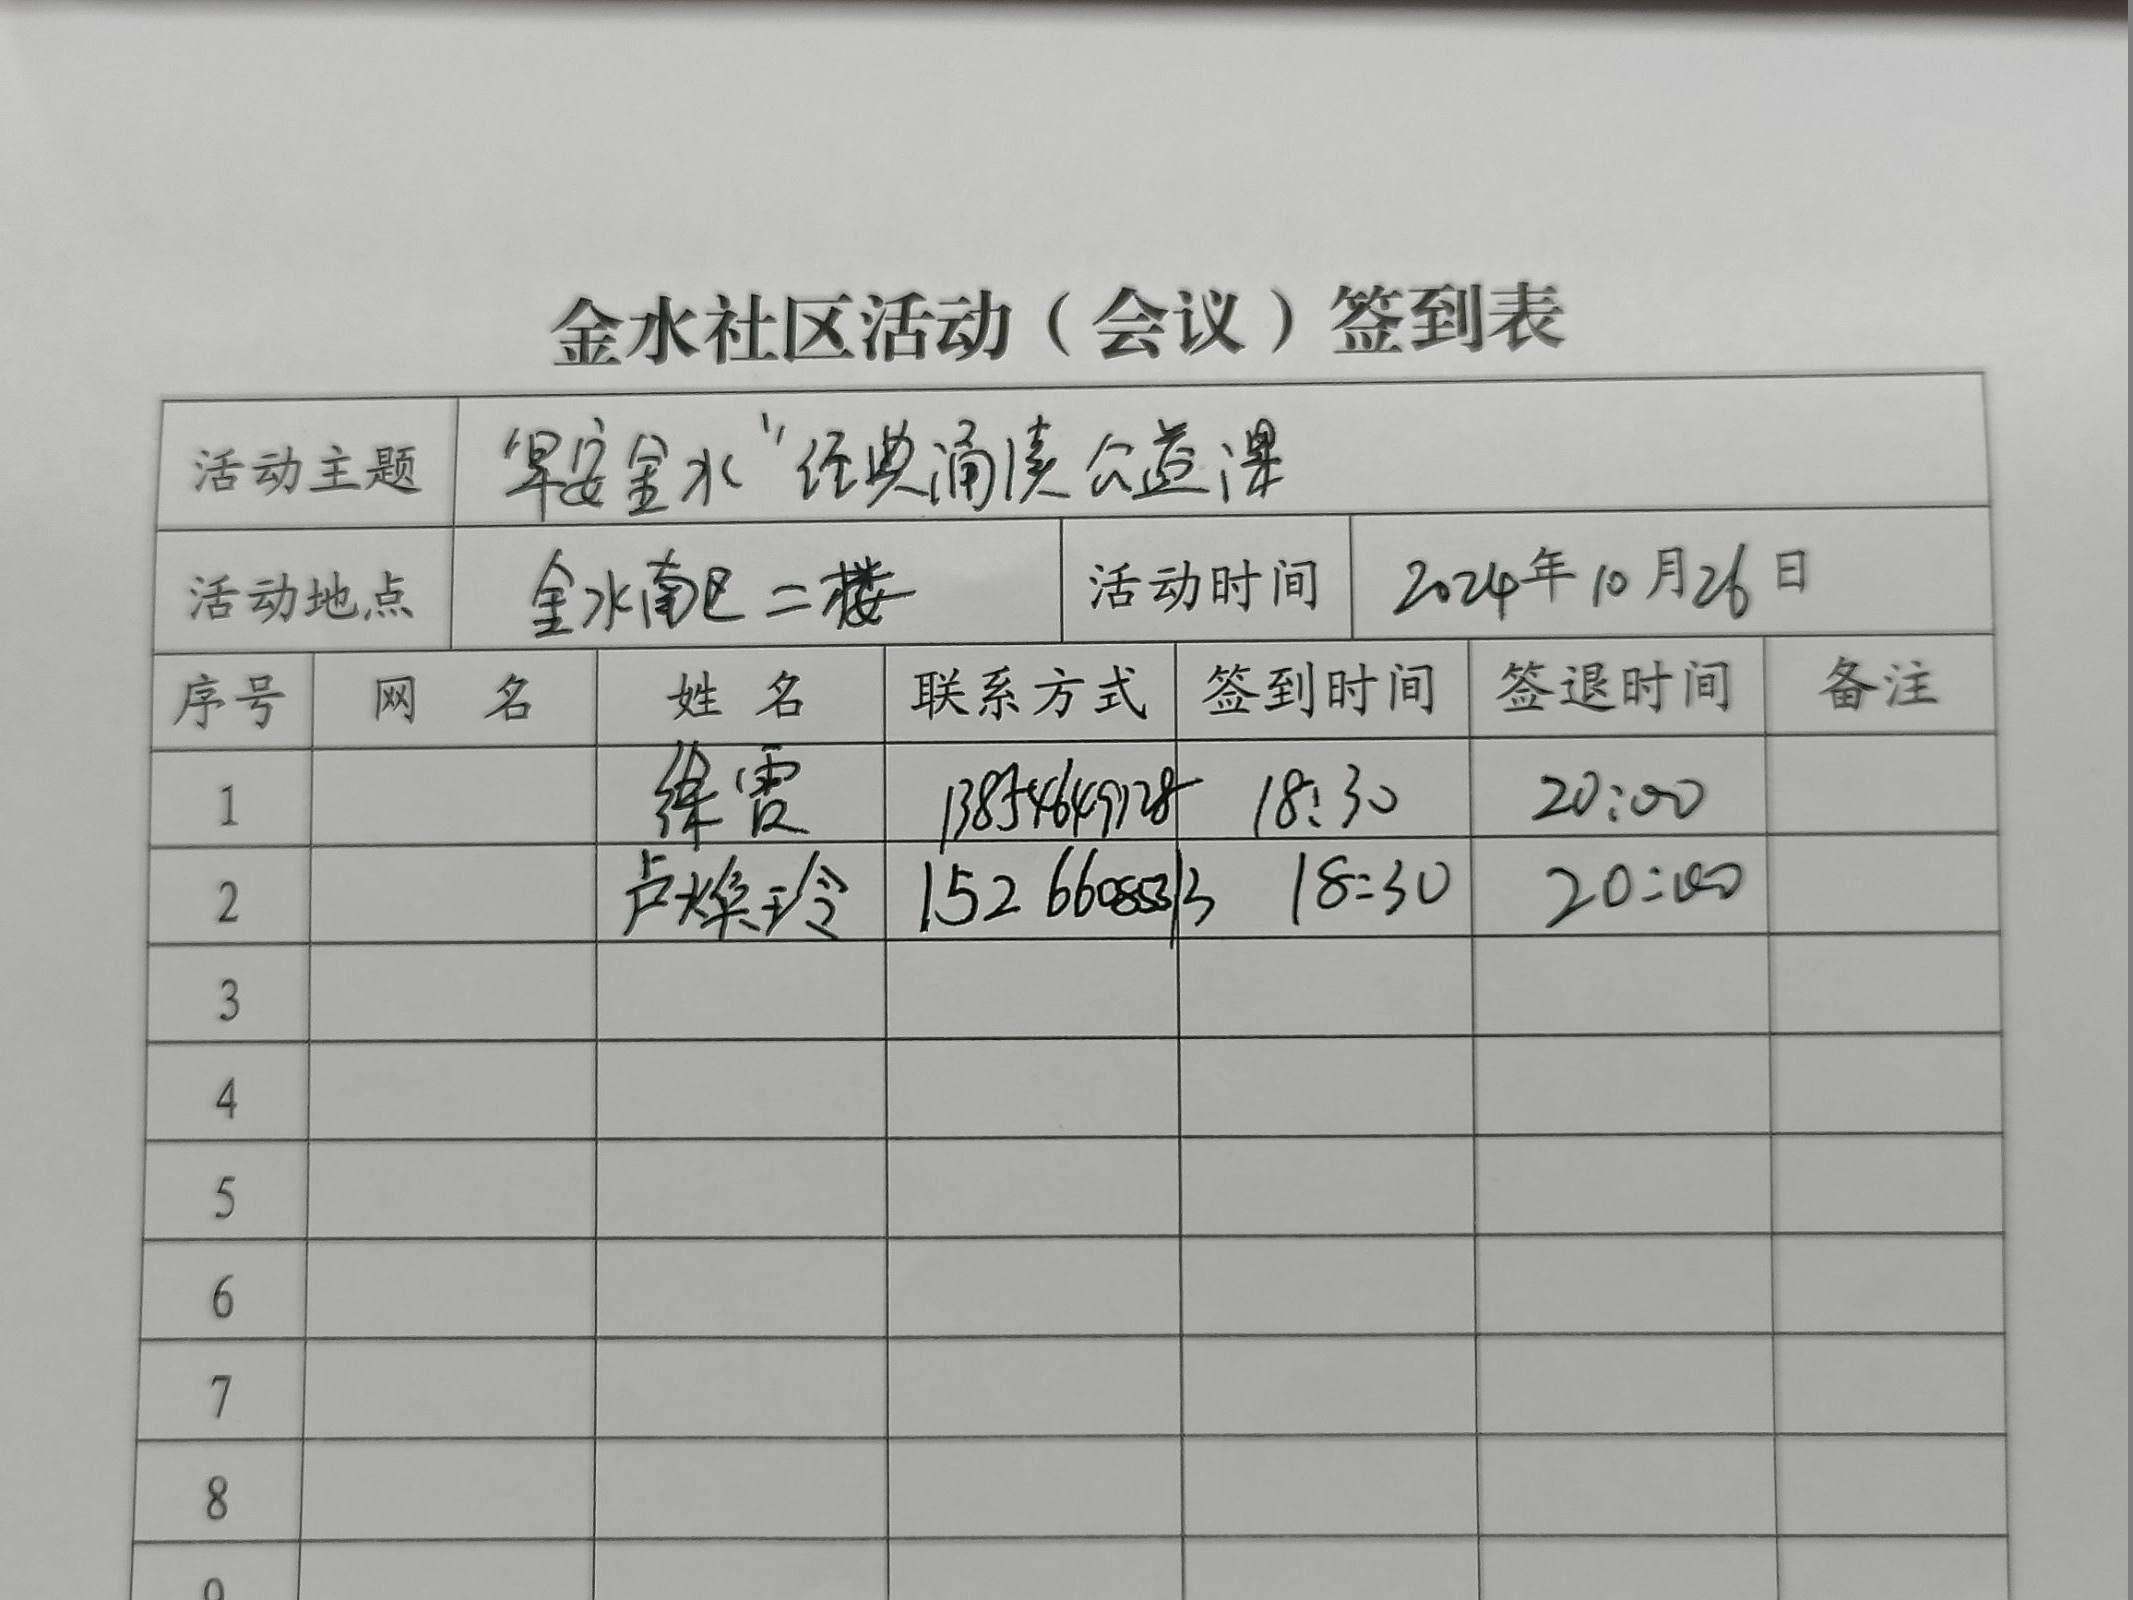 金水社区活动（会议）签到表
活动主题 “早安金水”经典诵读公益课
活动地点 金水南区二楼 活动时间 2024年10月26日
序号 网 名 姓 名 联系方式 签到时间 签退时间 备注
1 徐霞 13854649128 18:30 20:00
2 卢焕玲 18:30 20:00
3
4
5
6
7
8
9